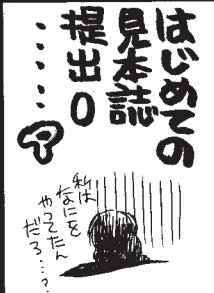 はじめての
見本誌
提出0
……?
私は
なにを
やってたん
だろ…?